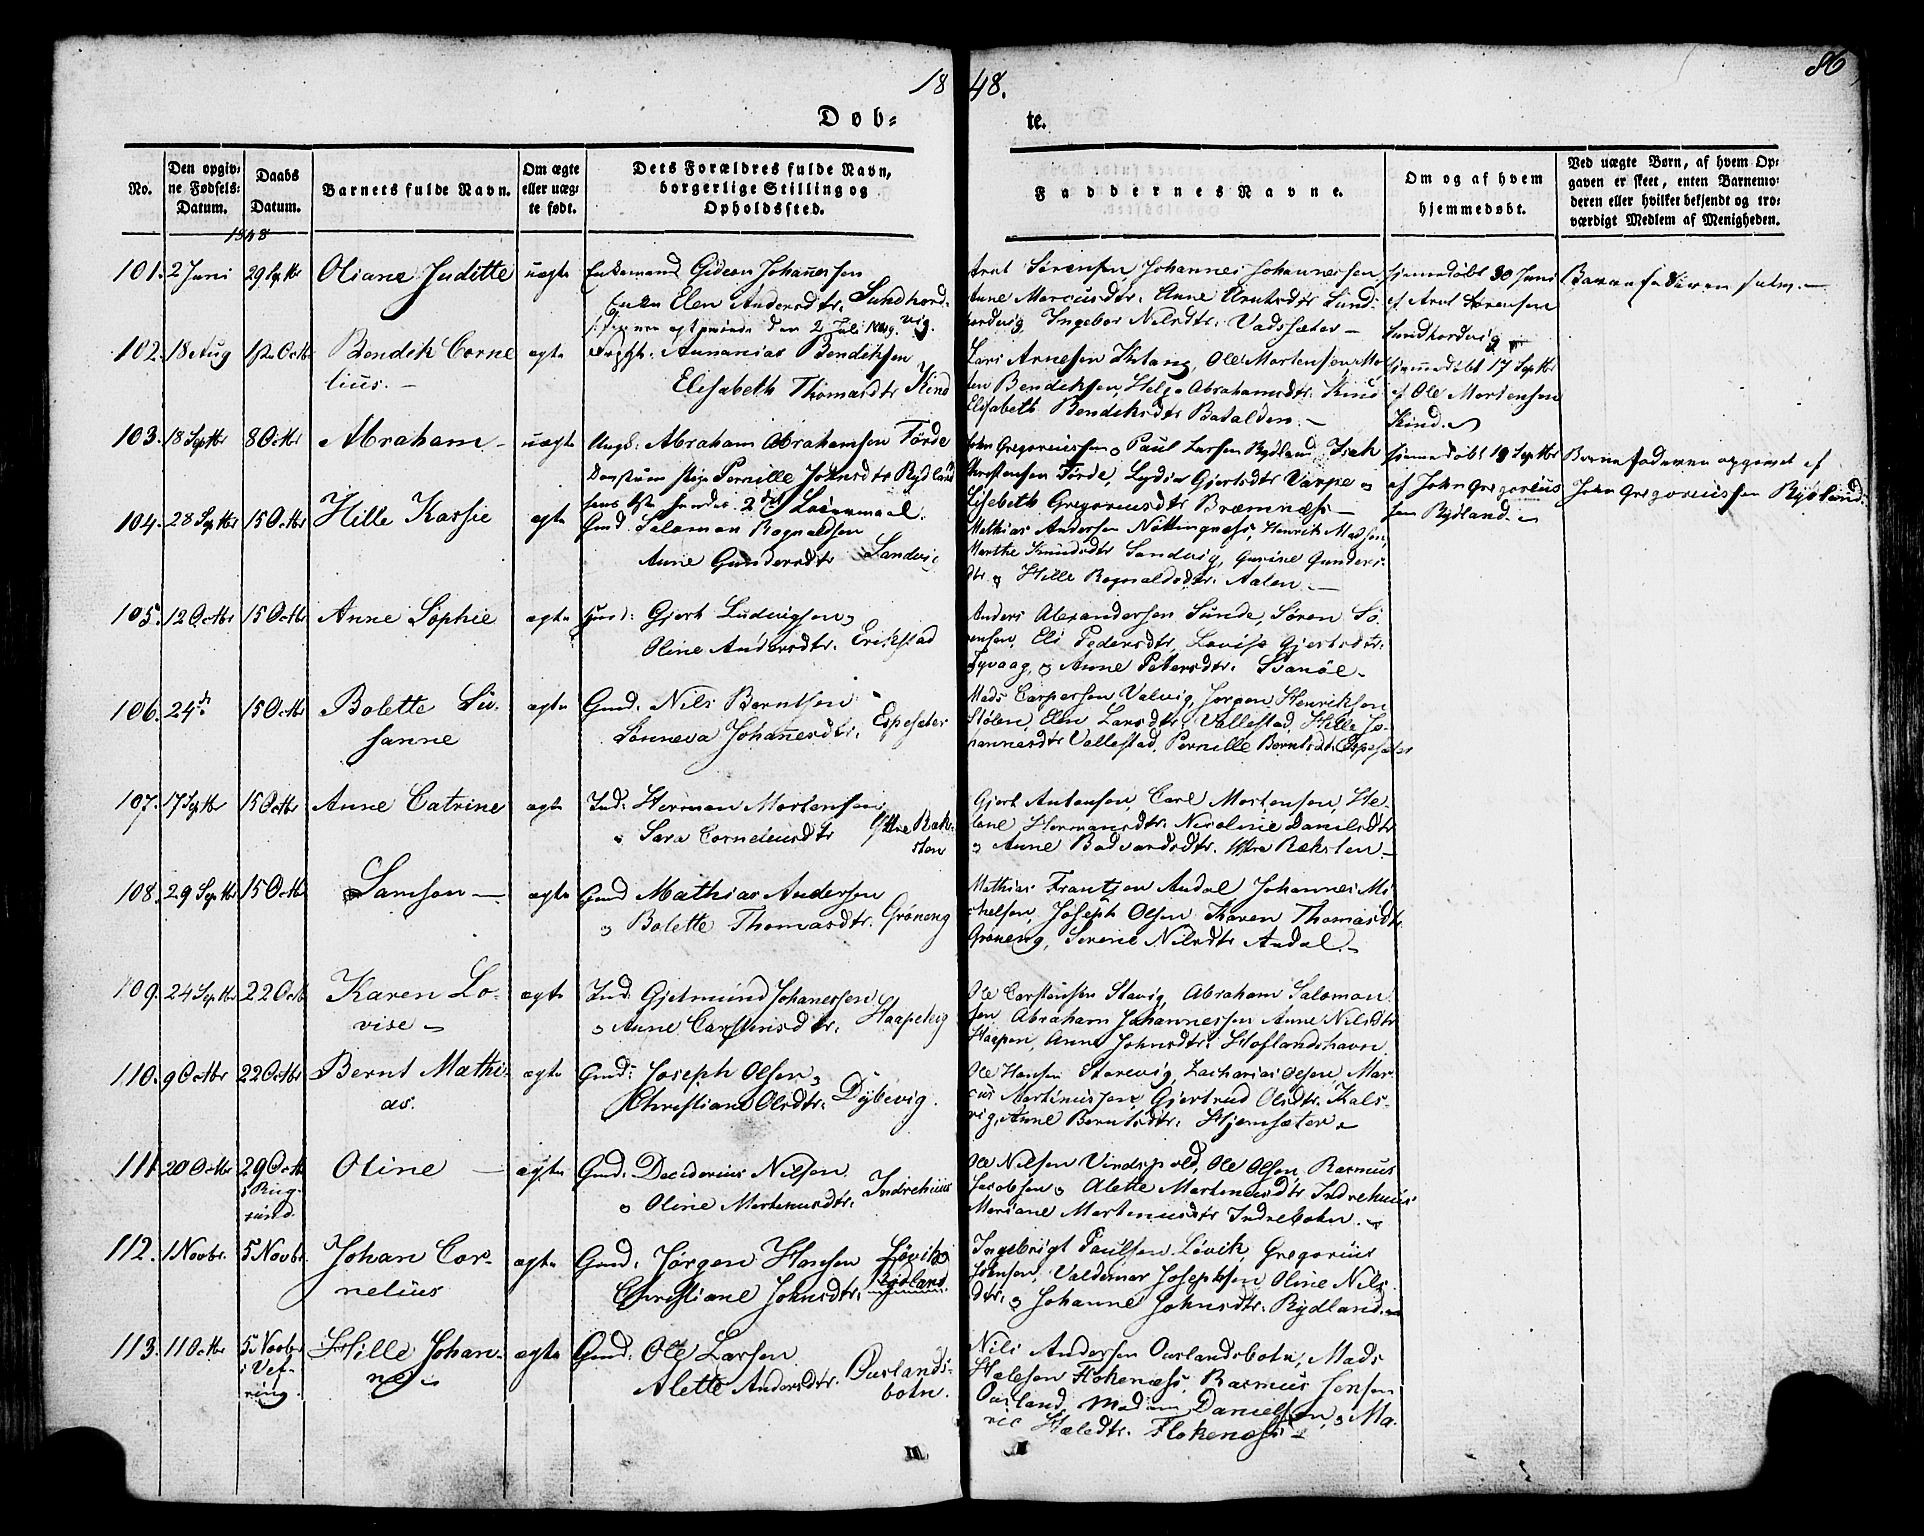 1848.
86
Døb-te.
No.
Den opgiv-
ne Fødsels-
Datum.
Daabs
Datum.
Barnets fulde Navn.
Om ægte
eller uæg-
te født.
Dets Forældres fulde Navn,
borgerlige Stilling og
Opholdssted.
Faddernes Navne.
Om og af hvem
hjemmedøbt.
Ved uægte Børn, af hvem Op-
gaven er skeet, enten Barnemo-
deren eller hvilket bekjendt og tro-
værdigt Medlem af Menigheden.
1848
101. 2 Juni 29 Septbr Oliane Juditte uægte Enkemand Gideon Johannesen
Enken Elen Andersdtr. Sundhord-
vig.
Arnt Sørensen Johannes Johannessen
Anne Marcusdtr. Anne Arntsdtr Sund-
hordvig, Ingebor Nilsdtr. Vadsæter
Hjemmedøbt 30 Juni
af Arnt Sørensen
Sundhordvig
Barnefaderen selv.
102. 18 Aug 1ste Octbr Bendik Corne
lius. ægte Ananias Bendiksen
Elisabeth Thomasdtr Kind
Lars Arnesen Ole Mortensen, Mor-
ten Bendiksen, Helge Abrahamsdtr. Kind
Elisabeth Bendiksdtr Batalden.
hjemmedøbt 17 Septbr
af Ole Mortensen
Kind.
103. 18 Septbr 8 Octbr Abraham uægte Ungk: Abraham Abrahamsen Førde
Pige Pernille Johnsdtr Rydland
hans 1ste hendes 2det Leiermaal.
John Gregoriussen Paul Larsen Rydland, Isak
Christensen Førde, Lydia Gjertsdtr Varpe
Lisebeth Gregoriusdtr Bremnæs
hjemmedøbt 19 Septbr
af John Gregorius
sen Rydland.
Barnefaderen opgivet af
John Gregoriussen Rydland.
104. 28 Septbr 15 Octbr Hille Kassie ægte Gmd. Salamon Rognaldsen
Anne Gundersdtr Sandvig
Mathias Andersen Nøttingnæss, Henrik Madsen,
Marthe Knudsdtr Sandvig, Gurine Gunders-
dtr. Hille Rognaldsdtr. Aalen
105. 12 Octbr 15 Octbr Anne Sophie ægte Huusd: Gjert Ludvigsen
Oline Andersdtr. Erikstad
Anders Alexandersen Sunde, Søren Sø-
rensen, Else Pedersdtr, Lovise Gjertsdtr.
Tyvaag, Anne Petersdtr. Svanöe
106. 24 15 Octbr Bolette Su-
sanne ægte Gmd: Nils Berntsen
Sønneva Johannesdtr. Espesæter
Mads Caspersen Valvig, Jørgen Henriksen
Stølen, Elen Larsdtr. Vallestad, Hille Jo-
hannesdtr Vallestad, Pernille Berntsdtr. Espesæter
107. 17 Septbr 15 Octbr Anne Catrine ægte Ind: Herman Mortensen
Sara Corneliusdtr Yttre Ræk-
sten
Gjert Antonsen, Carl Mortensen, He-
lene Hermansdtr. Nicoline Danielsdtr
Anne Bodvardsdtr. Yttre Ræksten
108. 29 Septbr 15 Octbr Samson ægte Gmd Mathias Andersen
Bolette Thomasdtr. Grøneng
Mathias Frantsen Andal Johannes Mi-
chelsen, Joseph Olsen Karen Thomasdtr
Grøneng, Serene Nilsdtr Andal.
109. 24 Septbr 22 Octb Karen Lo-
vise ægte Ind: Gjelmund Johanessen
Anne Carstensdtr.
Ole Carstensen Stavig, Abraham Salomon
sen Abraham Johannessen Anne Nilsdtr
Anne Johnsdtr. Hoflandshavn
110. 9 Octbr 22 Octbr Bernt Mathi-
as. ægte Gmd: Joseph Olsen
Christiane Olsdtr. Dybevig.
Ole Hansen Storevig, Zacharias Olsen Mar-
cus Martinussen, Gjertrud Olsdtr. Kals-
vig, Anne Berntsdtr. Hjemsæter
111. 20 Octbr 29 Octb
i Bing-
sund Oline ægte Gmd: Desiderius Nilsen
Oline Martinusdtr. Indrehuus
Ole Nilsen Vindspold, Ole Olsen, Rasmus
Jacobsen Alette Martinusdtr Indrehuus
Mariane Martinusdtr Indrebotn.
112. 1 Novbr. 5 Novbr Johan Cor-
nelius ægte Gmd: Jørgen Hansen Løvik
Christiane Johnsdtr. Rydland
Ingebrigt Paulsen Løvik, Gregorius
Johnsen, Valdemar Josephsen, Oline Nils
dtr. Johanne Johnsdtr. Rydland
113. 11 Octbr 5 Novbr
i Vef-
ring. Hille Johan-
ne ægte Gmd: Ole Larsen
Alette Andersdtr. Ourlands-
botn.
Nils Andersen Ourlandsbotn, Mads
Hælesen Flokenæss, Rasmus Jensen
Ourland, Madam Danielsen, Ma-
rie Hælsdtr. Flokenæss